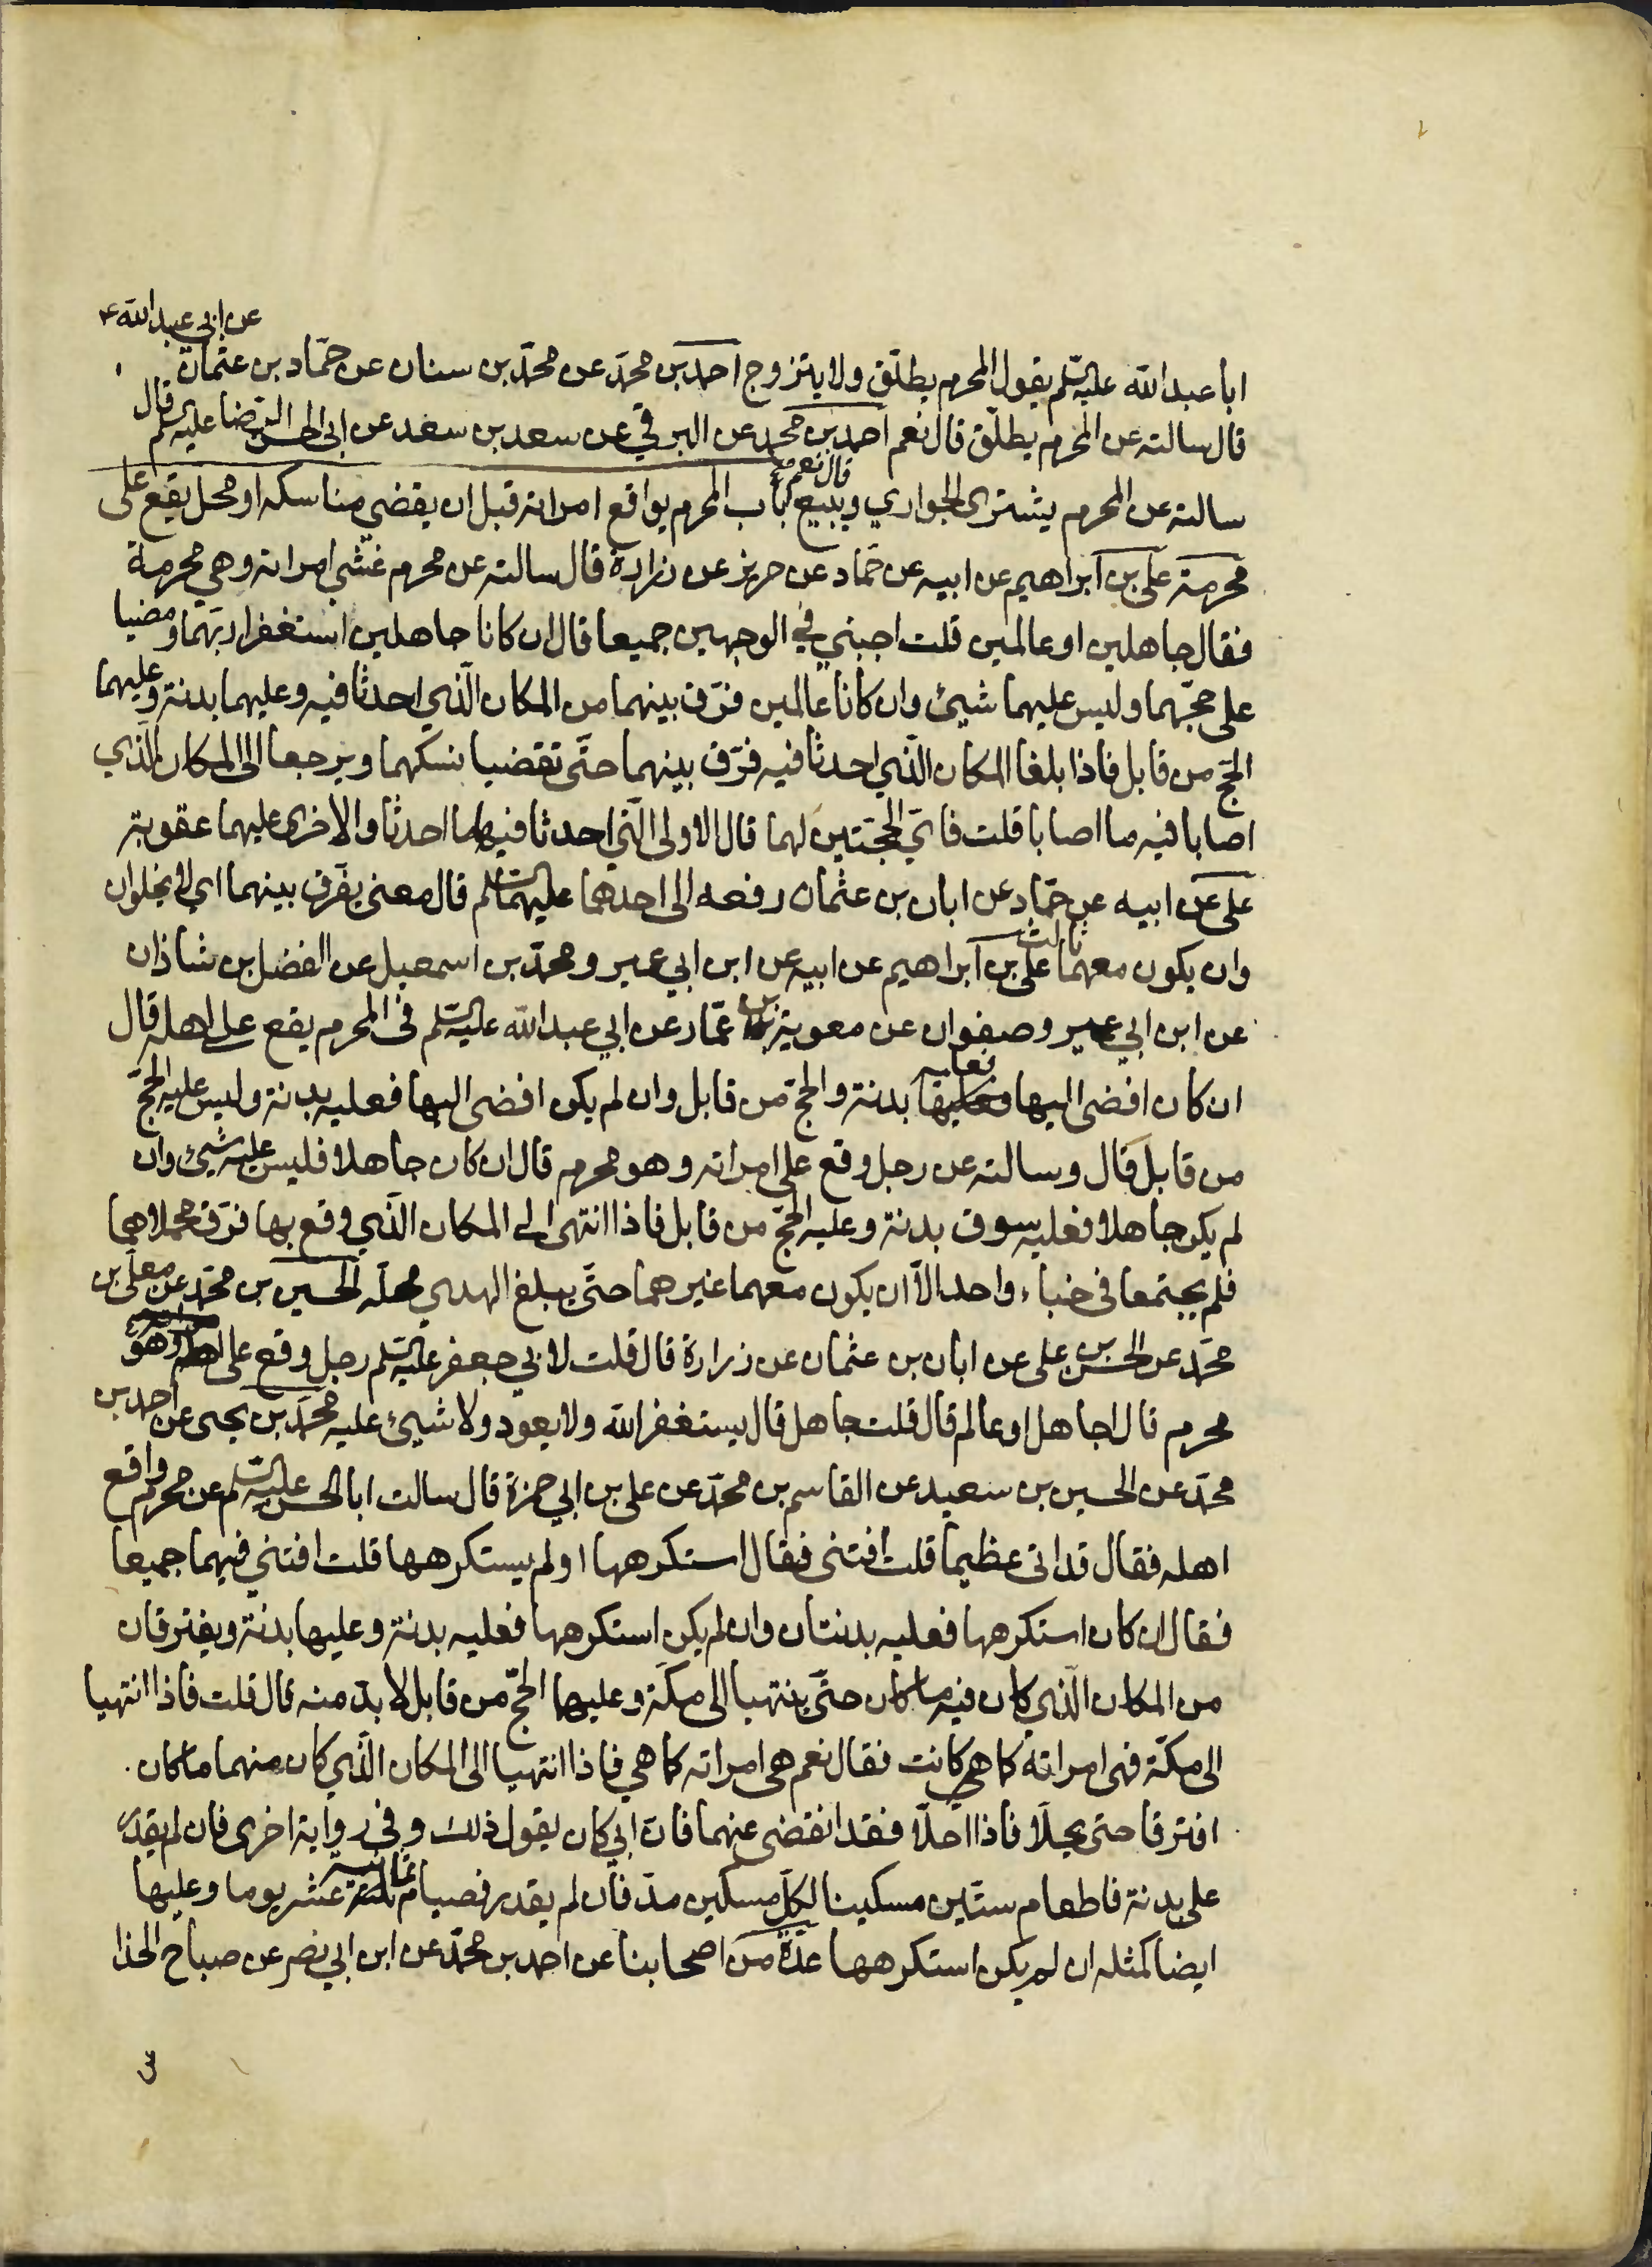 عن ابي عبدالله ع
ابا عبدالله عليه السلم يقول المحرم يطلّق ولا يتزوج احمد بن محمّد عن محمّد بن سنان عن حمّاد بن عثمان
قال سالته عن المحرم يطلّق قال نعم احمد بن محمد عن البرقي عن سعد بن سعد عن ابي الحسن الرضا عليه السلم قال
سالته عن المحرم يشتري الجواري ويبيع قال نعم باب المحرم يواقع امراته قبل ان يقضي مناسكه او محل يقع على
محرمة علي بن ابراهيم عن ابيه عن حمّاد عن حريز عن زرارة قال سالته عن محرم غشي امراته وهي محرمة
فقال جاهلين او عالمين قلت اجبني في الوجهين جميعا قال ان كانا جاهلين استغفرا ربّهما ومضيا
على حجّهما وليس عليهما شيئ وان كانا عالمين فرّق بينهما من المكان الّذي احدثا فيه وعليهما بدنة وعليهما
الحجّ من قابل فاذا بلغا المكان الّذي احدثا فيه فرّق بينهما حتّى تقضيا نسكهما ويرجعا الى المكان الّذي
اصابا فيه ما اصابا قلت فايّ الحجّتين لهما قال الاولى الّتي احدثا فيها ما احدثا والاخرى عليهما عقوبة
علي عن ابيه عن حمّاد عن ابان بن عثمان رفعه الى احدهما عليهما السلم قال معنى يفرّق بينهما اي لا يخلوان
وان يكون معهما ثالث علي بن ابراهيم عن ابيه عن ابن ابي عمير ومحمّد بن اسمعيل عن الفضل بن شاذان
عن ابن ابي عمير وصفوان عن معوية بن عمّار عن ابي عبدالله عليه السلم في المحرم يقع على اهله قال
ان كان افضى اليها فعليه بدنة والحجّ من قابل وان لم يكن افضى اليها فعليه بدنة وليس عليه الحجّ
من قابل قال وسالته عن رجل وقع على امراته وهو محرم قال ان كان جاهلا فليس عليه شيئ وان
لم يكن جاهلا فعليه سوق بدنة وعليه الحجّ من قابل فاذا انتهى الى المكان الّذي وقع بها فرّق محملاهما
فلم يجتمعا في خباء واحد الّا ان يكون معهما غيرهما حتّى يبلغ الهدي محلّه الحسين بن محمّد عن معلّى بن
محمّد عن الحسن بن علي عن ابان بن عثمان عن زرارة قال قلت لابي جعفر عليه السلم رجل وقع على اهله وهو
محرم قال اجاهل او عالم قال قلت جاهل قال يستغفر الله ولا يعود ولا شيئ عليه محمّد بن يحيى عن احمد بن
محمّد عن الحسين بن سعيد عن القاسم بن محمّد عن علي بن ابي حمزة قال سالت ابا الحسن عليه السلم عن محرم واقع
اهله فقال قد اتى عظيما قلت افتني فقال استكرهها او لم يستكرهها قلت افتني فيهما جميعا
فقال ان كان استكرهها فعليه بدنتان وان لم يكن استكرهها فعليه بدنة وعليها بدنة ويفترقان
من المكان الّذي كان فيه ما كان حتّى ينتهيا الى مكّة وعليهما الحجّ من قابل لا بدّ منه قال قلت فاذا انتهيا
الى مكّة فهي امراته كما هي كانت فقال نعم هي امراته كما هي فاذا انتهيا الى المكان الّذي كان منهما ما كان
افترقا حتى يحلّا فاذا احلّا فقد انقضى عنهما فانّ ابي كان يقول ذلك وفي رواية اخرى فان لم يقدر
على بدنة فاطعام ستّين مسكينا لكلّ مسكين مدّ فان لم يقدر فصيام ثمانية عشر يوما وعليها
ايضا كمثله ان لم يكن استكرهها عدّة من اصحابنا عن احمد بن محمّد عن ابن ابي نصر عن صباح الحذا